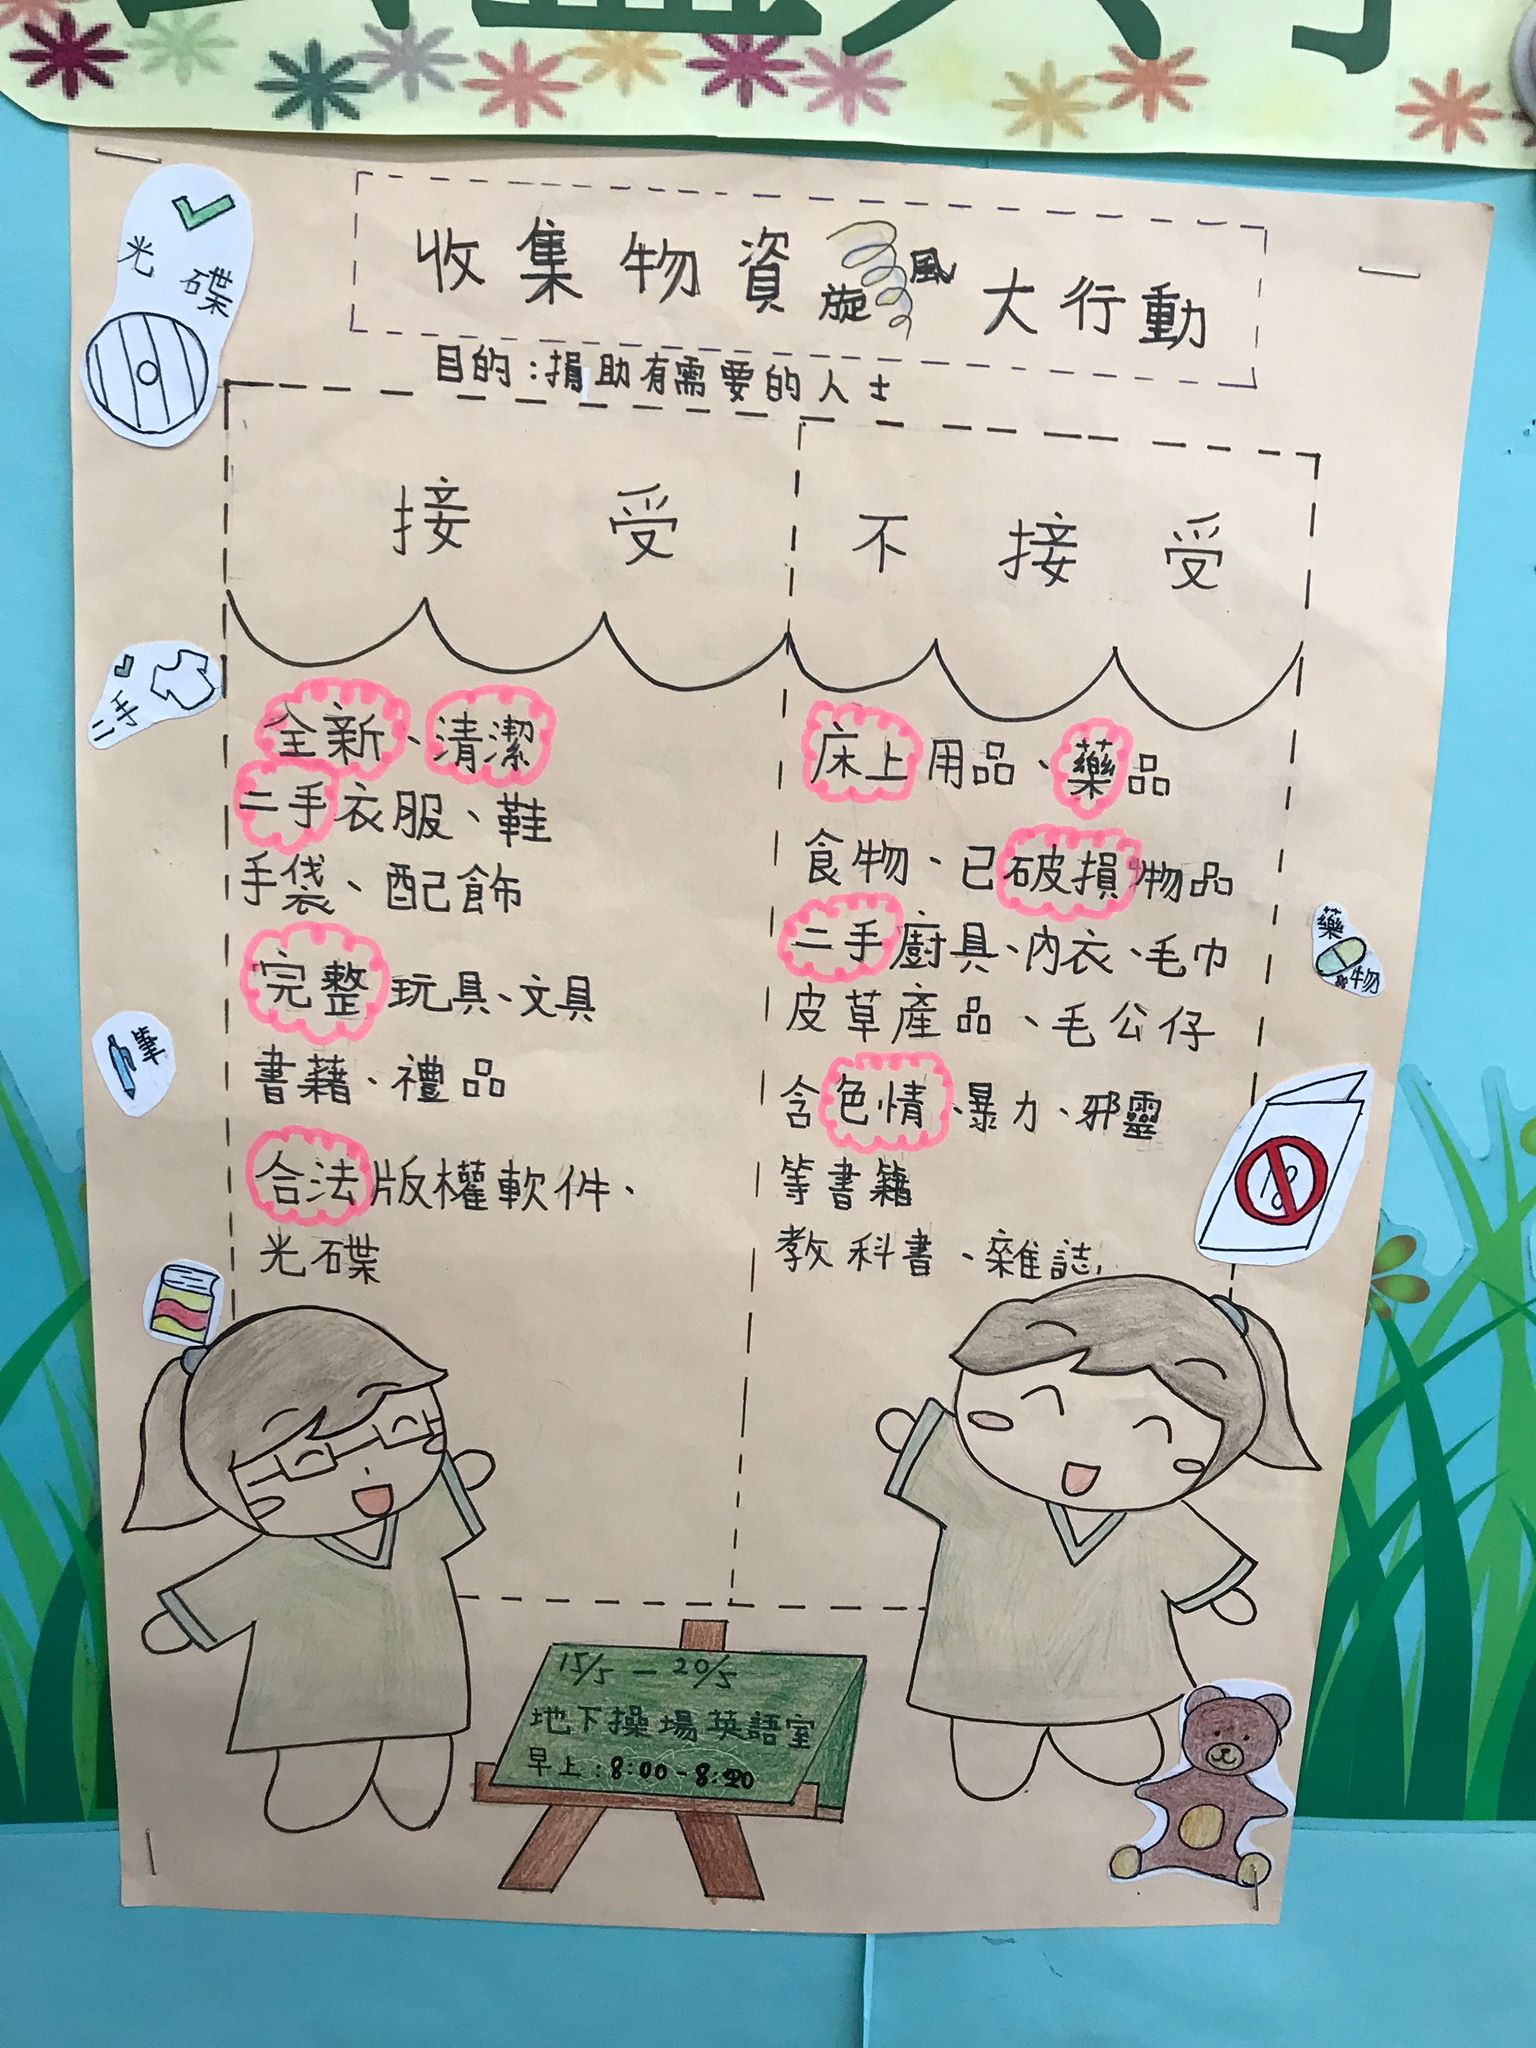 光碟
收集物資旋風大行動
目的：捐助有需要的人士
接受
不接受
二手
全新、清潔
二手衣服、鞋
手袋、配飾
完整玩具、文具
書藉、禮品
合法版權軟件、
光碟
筆
床上用品、藥品
食物、已破損物品
二手廚具、內衣、毛巾
皮草產品、毛公仔
含色情、暴力、邪靈
等書籍
教科書、雜誌
藥物
18
15/5 — 20/5
地下操場英語室
早上：8:00-8:20